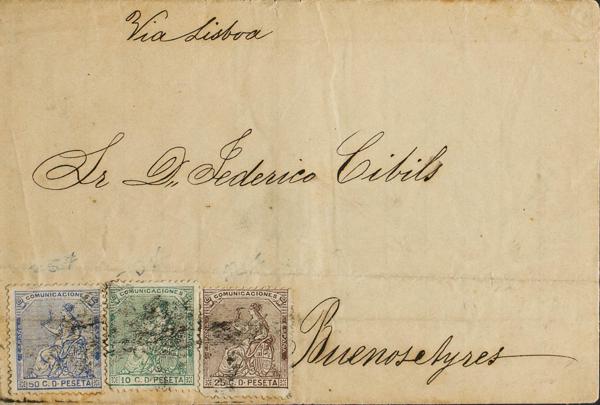 Via Lisboa
Sr Dn Federico Cibils
COMUNICACIONES
50 C. D PESETA
COMUNICACIONES
10 C. D PESETA
COMUNICACIONES
25 C. D PESETA
Buenos Ayres